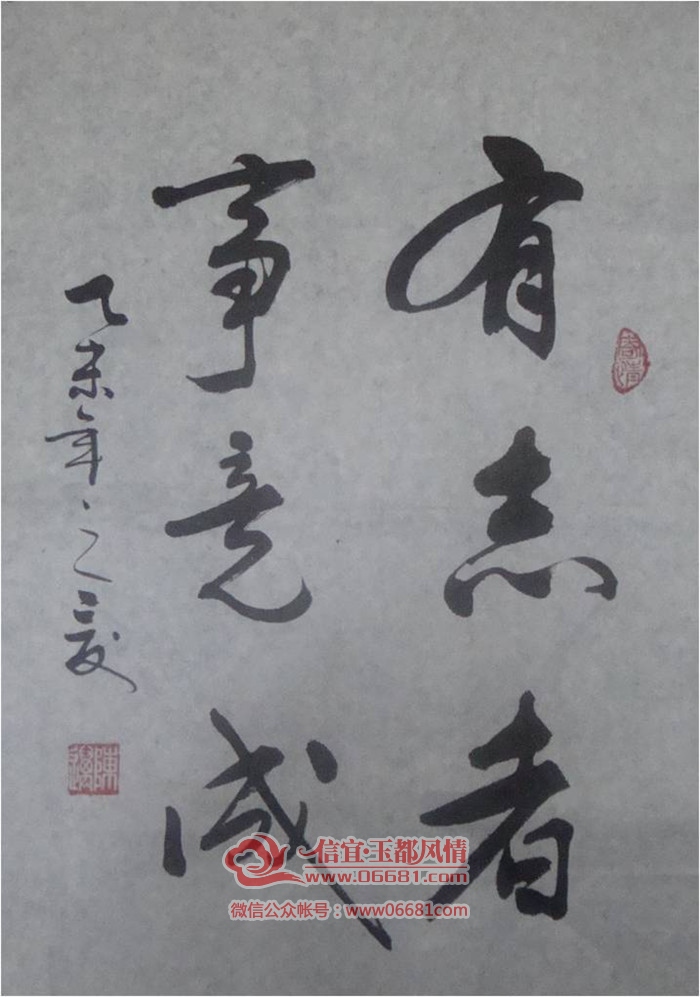 有志者
事竟成
乙未年
信宜·玉都风情
www.06681.com
微信公众帐号：www06681com